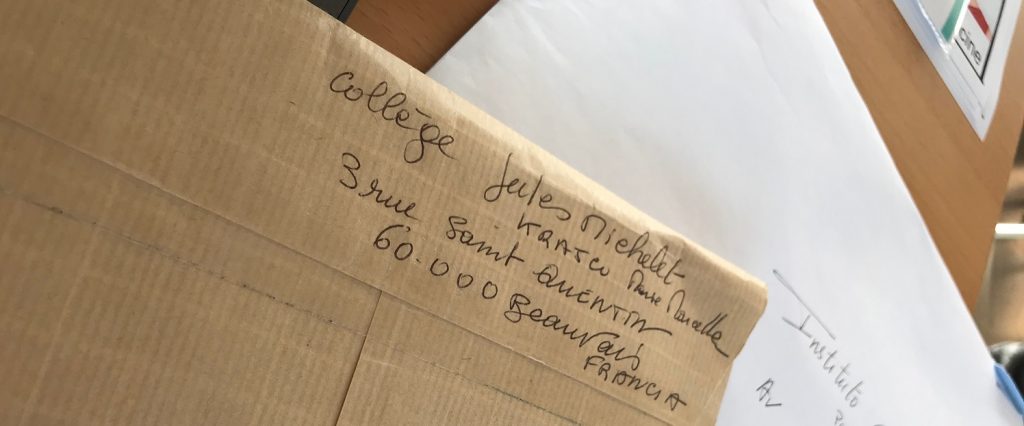 Collège Jules Michelet
KRAFCO Marcella
3 rue Saint QUENTIN
60.000 Beauvais
FRANCIA
Instituto
Av
cine